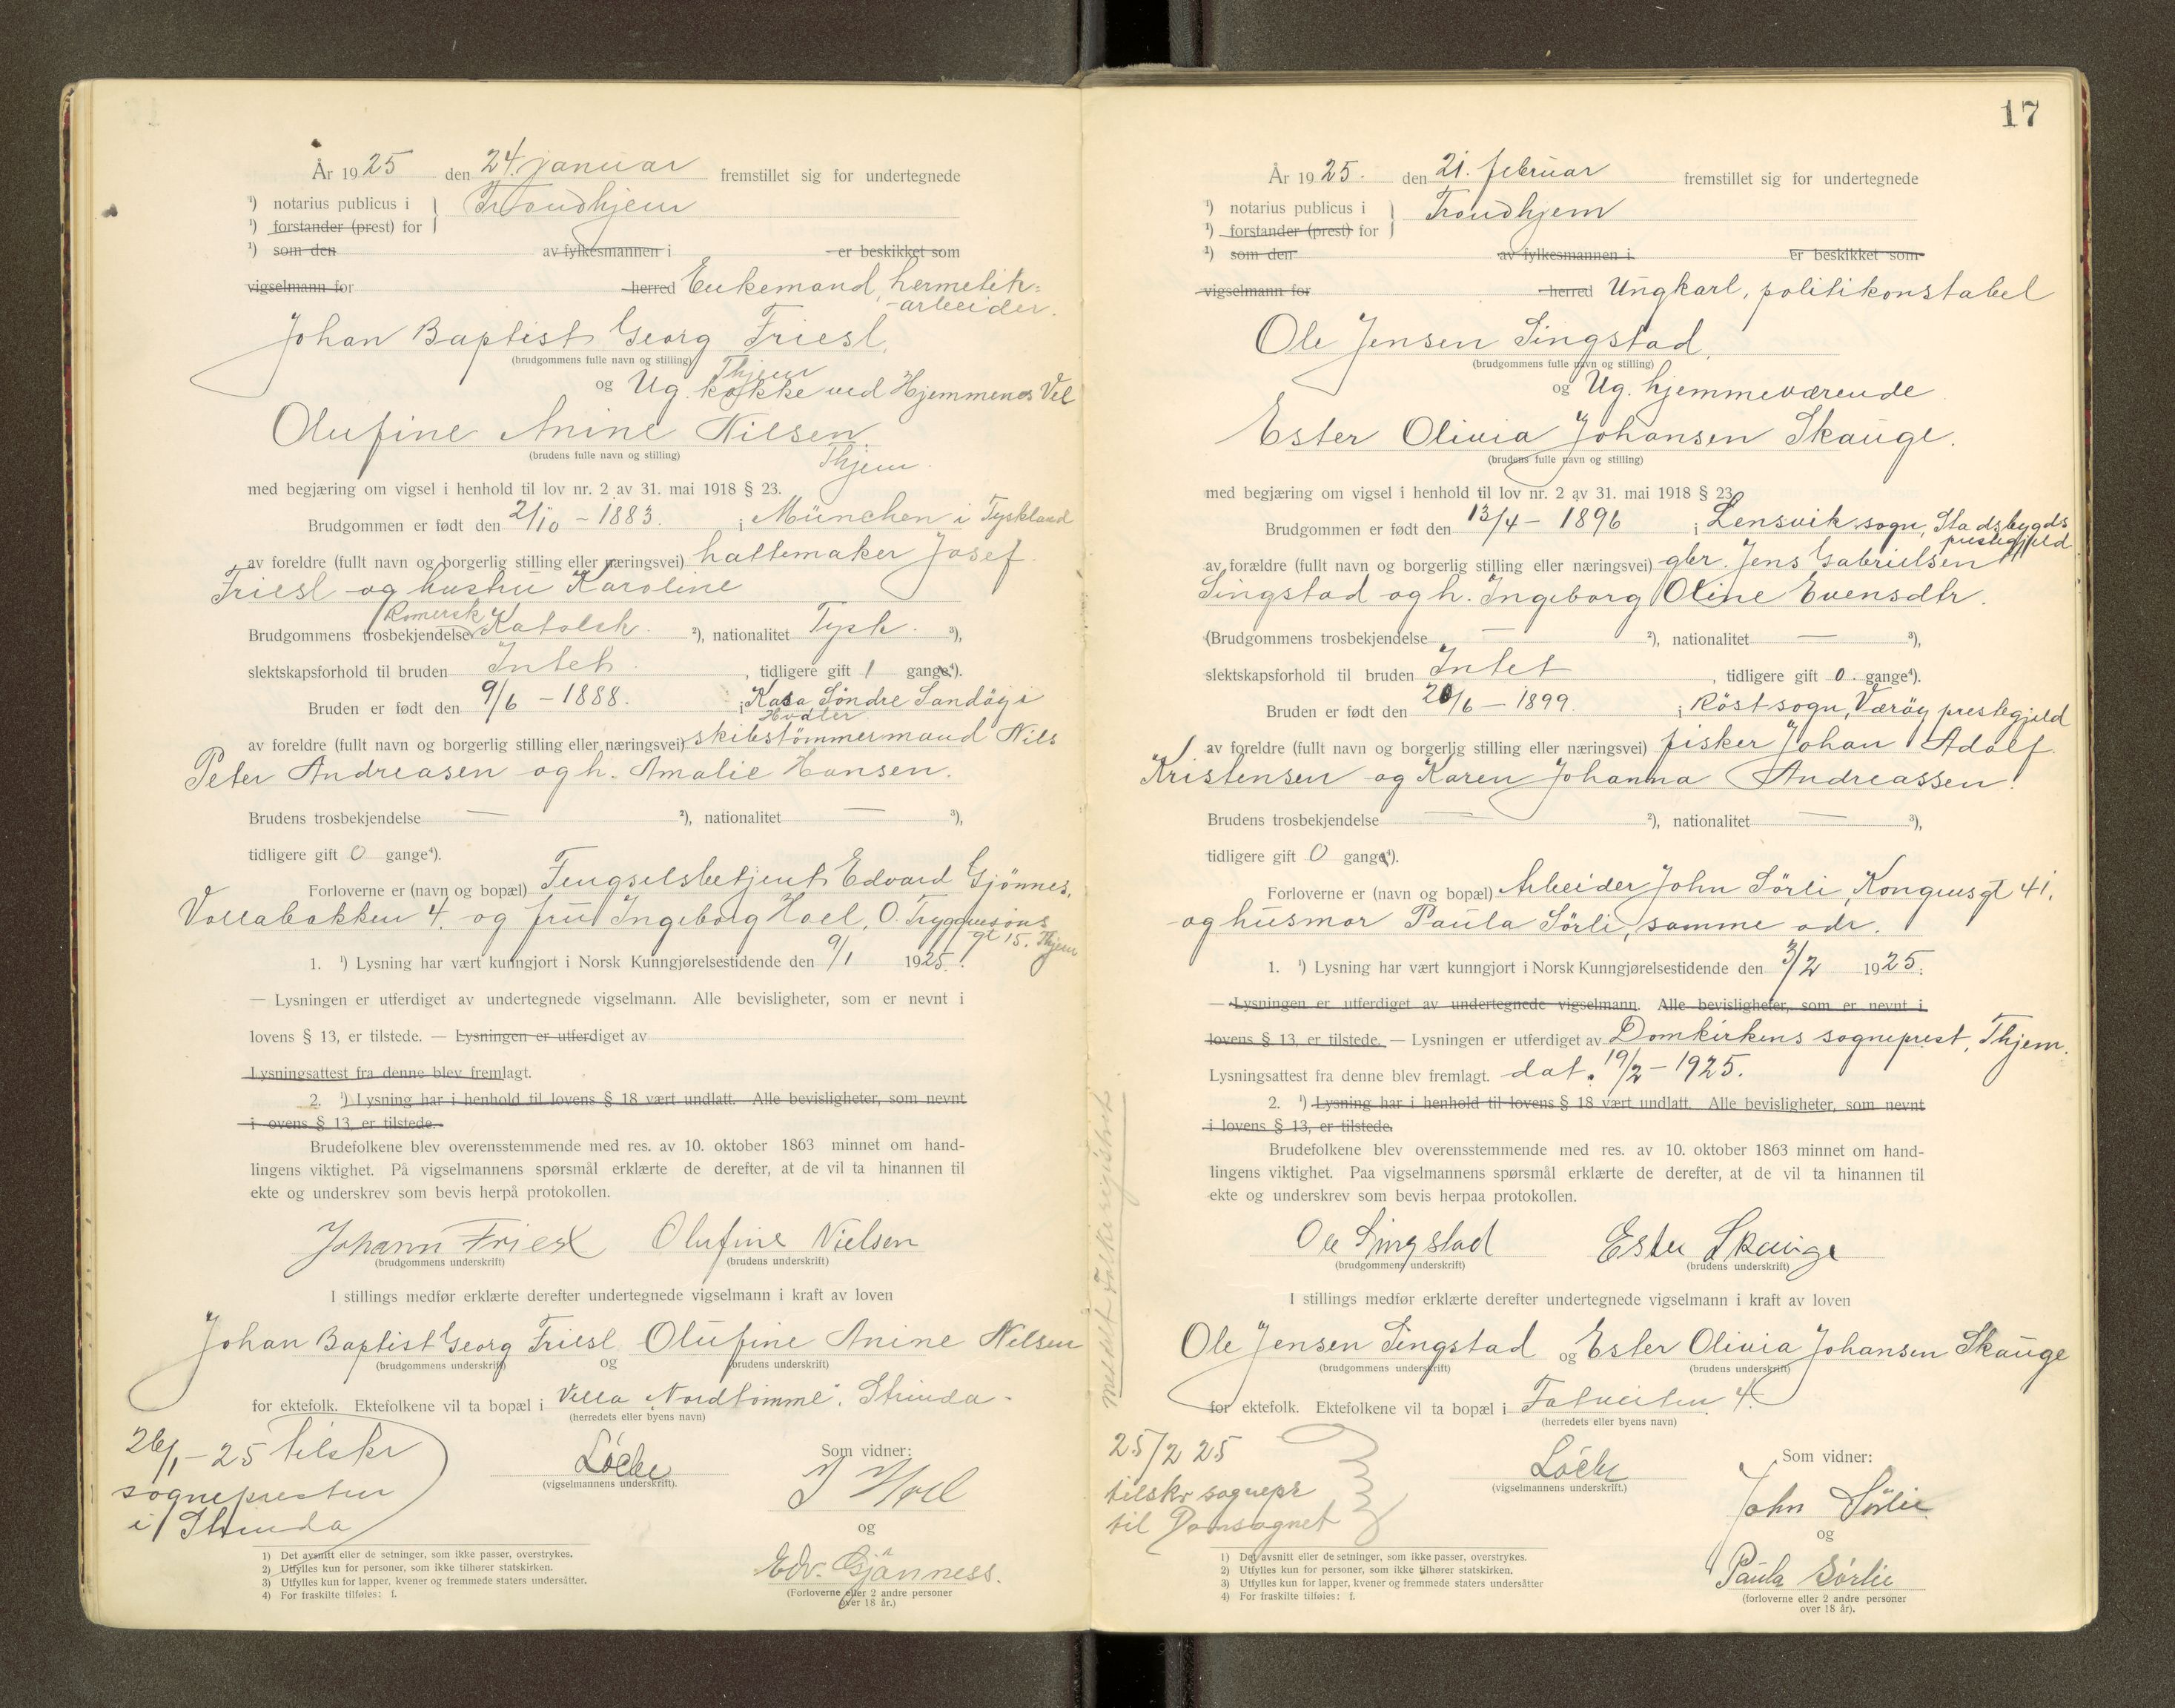 År 1925 den 24. januar fremstillet sig for undertegnede
¹) notarius publicus i } Trondhjem
¹) forstander (prest) for
¹) som den av fylkesmannen i er beskikket som
vigselmann for herred Enkemand, hermetik-
-arbeider.
Johan Baptist Georg Friesl,
(brudgommens fulle navn og stilling) Thjem
og Ug. kokke ved Hjemmenes Vel
Olufine Anine Nilsen.
(brudens fulle navn og stilling) Thjem.
med begjæring om vigsel i henhold til lov nr. 2 av 31. mai 1918 § 23.
Brudgommen er født den 2/10 - 1883. i München i Tyskland
av foreldre (fullt navn og borgerlig stilling eller næringsvei) hattemaker Josef
Friesl og hustru Karoline
Romersk
Brudgommens trosbekjendelse Katolsk. ²), nationalitet Tysk. ³),
slektskapsforhold til bruden Intet. , tidligere gift 1 gange⁴).
Bruden er født den 9/6 - 1888. i Kasa Søndre Sandøy i
Hvaler
av foreldre (fullt navn og borgerlig stilling eller næringsvei) skibstømmermand Nils
Peter Andreasen og h. Amalie Hansen.
Brudens trosbekjendelse — ²), nationalitet — ³),
tidligere gift 0 gange⁴).
Forloverne er (navn og bopæl) Fengselsbetjent Edvard Gjönnes,
Vollabakken 4. og fru Ingeborg Hoel, O. Tryggvesøns
gt 15. Thjem
1. ¹) Lysning har vært kunngjort i Norsk Kunngjørelsestidende den 9/1 1925.
— Lysningen er utferdiget av undertegnede vigselmann. Alle bevisligheter, som er nevnt i
lovens § 13, er tilstede. — Lysningen er utferdiget av
Lysningsattest fra denne blev fremlagt.
2. ¹) Lysning har i henhold til lovens § 18 vært undlatt. Alle bevisligheter, som nevnt
i lovens § 13, er tilstede.
Brudefolkene blev overensstemmende med res. av 10. oktober 1863 minnet om hand-
lingens viktighet. På vigselmannens spørsmål erklærte de derefter, at de vil ta hinannen til
ekte og underskrev som bevis herpå protokollen.
Johann Friesl Olufine Nielsen
(brudgommens underskrift) (brudens underskrift)
I stillings medfør erklærte derefter undertegnede vigselmann i kraft av loven
Johan Baptist Georg Friesl og Olufine Anine Nilsen
(brudgommens underskrift) (brudens underskrift)
for ektefolk. Ektefolkene vil ta bopæl i Villa "Nordtømme". Strinda -
(herredets eller byens navn)
26/1-25 tilskr
sognepresten
i Strinda
Löche
(vigselmannens underskrift).
Som vidner:
I Hoel
og
Edv. Gjönness.
(Forloverne eller 2 andre personer
over 18 år.)
1) Det avsnitt eller de setninger, som ikke passer, overstrykes.
2) Utfylles kun for personer, som ikke tilhører statskirken.
3) Utfylles kun for lapper, kvener og fremmede staters undersåtter.
4) For fraskilte tilføies: f.
17
År 1925. den 21. februar fremstillet sig for undertegnede
¹) notarius publicus i } Trondhjem
¹) forstander (prest) for
¹) som den av fylkesmannen i er beskikket som
vigselmann for herred Ungkarl, politikonstabel
Ole Jensen Singstad,
(brudgommens fulle navn og stilling)
og Ug. hjemmeværende
Ester Olivia Johansen Skauge.
(brudens fulle navn og stilling)
med begjæring om vigsel i henhold til lov nr. 2 av 31. mai 1918 § 23.
Brudgommen er født den 13/4 - 1896 i Lensvik sogn, Stadsbygds
prestegjeld
av forældre (fullt navn og borgerlig stilling eller næringsvei) gbr. Jens Gabrielsen
Singstad og h. Ingeborg Oline Evensdtr.
(Brudgommens trosbekjendelse — ²), nationalitet — ³),
slektskapsforhold til bruden Intet , tidligere gift 0. gange⁴).
Bruden er født den 20/6 - 1899. i Röst sogn, Værøy prestegjeld
av foreldre (fullt navn og borgerlig stilling eller næringsvei) fisker Johan Adolf
Kristensen og Karen Johanna Andreassen.
Brudens trosbekjendelse — ²), nationalitet — ³),
tidligere gift 0 gange⁴).
Forloverne er (navn og bopæl) Arbeider John Sörli, Kongensgt 41.
og husmor Paula Sörli, samme adr.
1. ¹) Lysning har vært kunngjort i Norsk Kunngjørelsestidende den 3/2 1925.
— Lysningen er utferdiget av undertegnede vigselmann. Alle bevisligheter, som er nevnt i
lovens § 13, er tilstede. — Lysningen er utferdiget av Domkirkens sogneprest, Thjem.
Lysningsattest fra denne blev fremlagt. dat. 19/2 - 1925.
2. ¹) Lysning har i henhold til lovens § 18 vært undlatt. Alle bevisligheter, som nevnt
i lovens § 13, er tilstede.
Brudefolkene blev overensstemmende med res. av 10. oktober 1863 minnet om hand-
lingens viktighet. Paa vigselmannens spørsmål erklærte de derefter, at de vil ta hinannen til
ekte og underskrev som bevis herpaa protokollen.
Ole Singstad Ester Skauge
(brudgommens underskrift) (brudens underskrift)
I stillings medfør erklærte derefter undertegnede vigselmann i kraft av loven
Ole Jensen Singstad og Ester Olivia Johansen Skauge
(brudgommens underskrift) (brudens underskrift)
for ektefolk. Ektefolkene vil ta bopæl i Tolveiten 4.
(herredets eller byens navn)
meldt Folkeregistret.
25/2 25
tilskr sognepr
til Domsognet
Löche
(vigselmannens underskrift.)
Som vidner:
John Sørlie
og
Paula Sörlie
(forloverne eller 2 andre personer
over 18 år).
1) Det avsnitt eller de setninger, som ikke passer, overstrykes.
2) Utfylles kun for personer, som ikke tilhører statskirken.
3) Utfylles kun for lapper, kvener og fremmede staters undersåtter
4) For fraskilte tilføies: f.